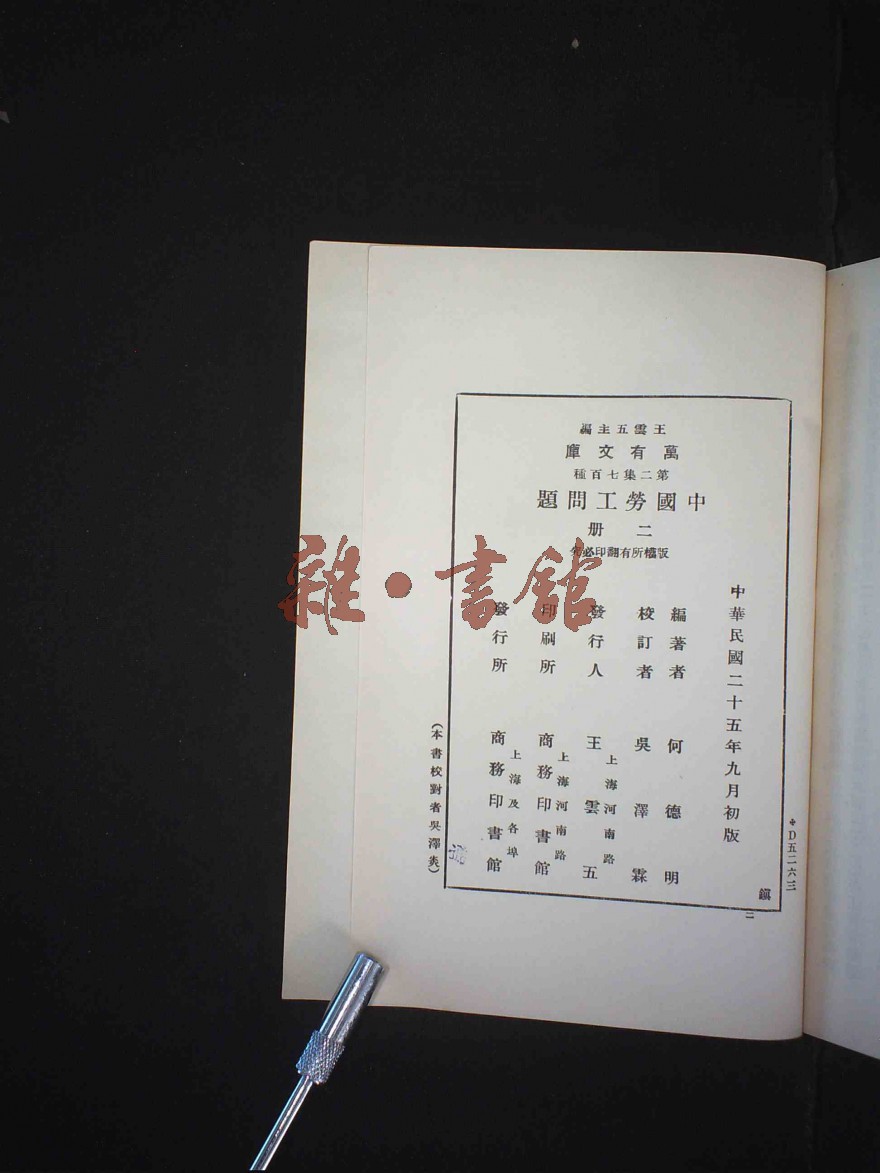 王雲五主編
萬有文庫
第二集七百種
中國勞工問題
二册
版權所有翻印必究
中華民國二十五年九月初版
編著者 何德明
校訂者 吳澤霖
發行人 王雲五
上海河南路
印刷所 商務印書館
上海河南路
發行所 商務印書館
上海及各埠
(本書校對者吳澤炎)
✥D五二六三
二
雜·書館